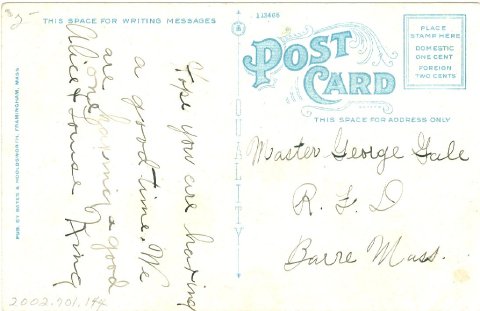 THIS SPACE FOR WRITING MESSAGES
Hope you are having
a good time. We
are having a good
one
Alice & Louise King
PUB. BY BATES & HOLDSWORTH, FRAMINGHAM, MASS
2002.701.144
QUALITY
113468
POST CARD
PLACE
STAMP HERE
DOMESTIC
ONE CENT
FOREIGN
TWO CENTS
THIS SPACE FOR ADDRESS ONLY
Master George Gale
R. F. D
Barre Mass.